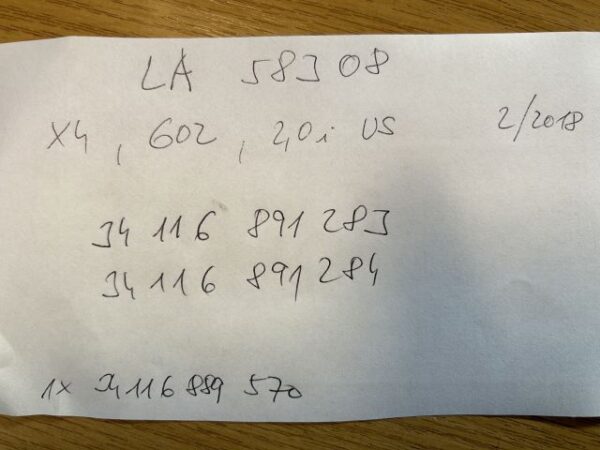 LA 58308
X4, G02, 2,0i US 2/2018
34 116 891 283
34 116 891 284
1x 34 116 889 570